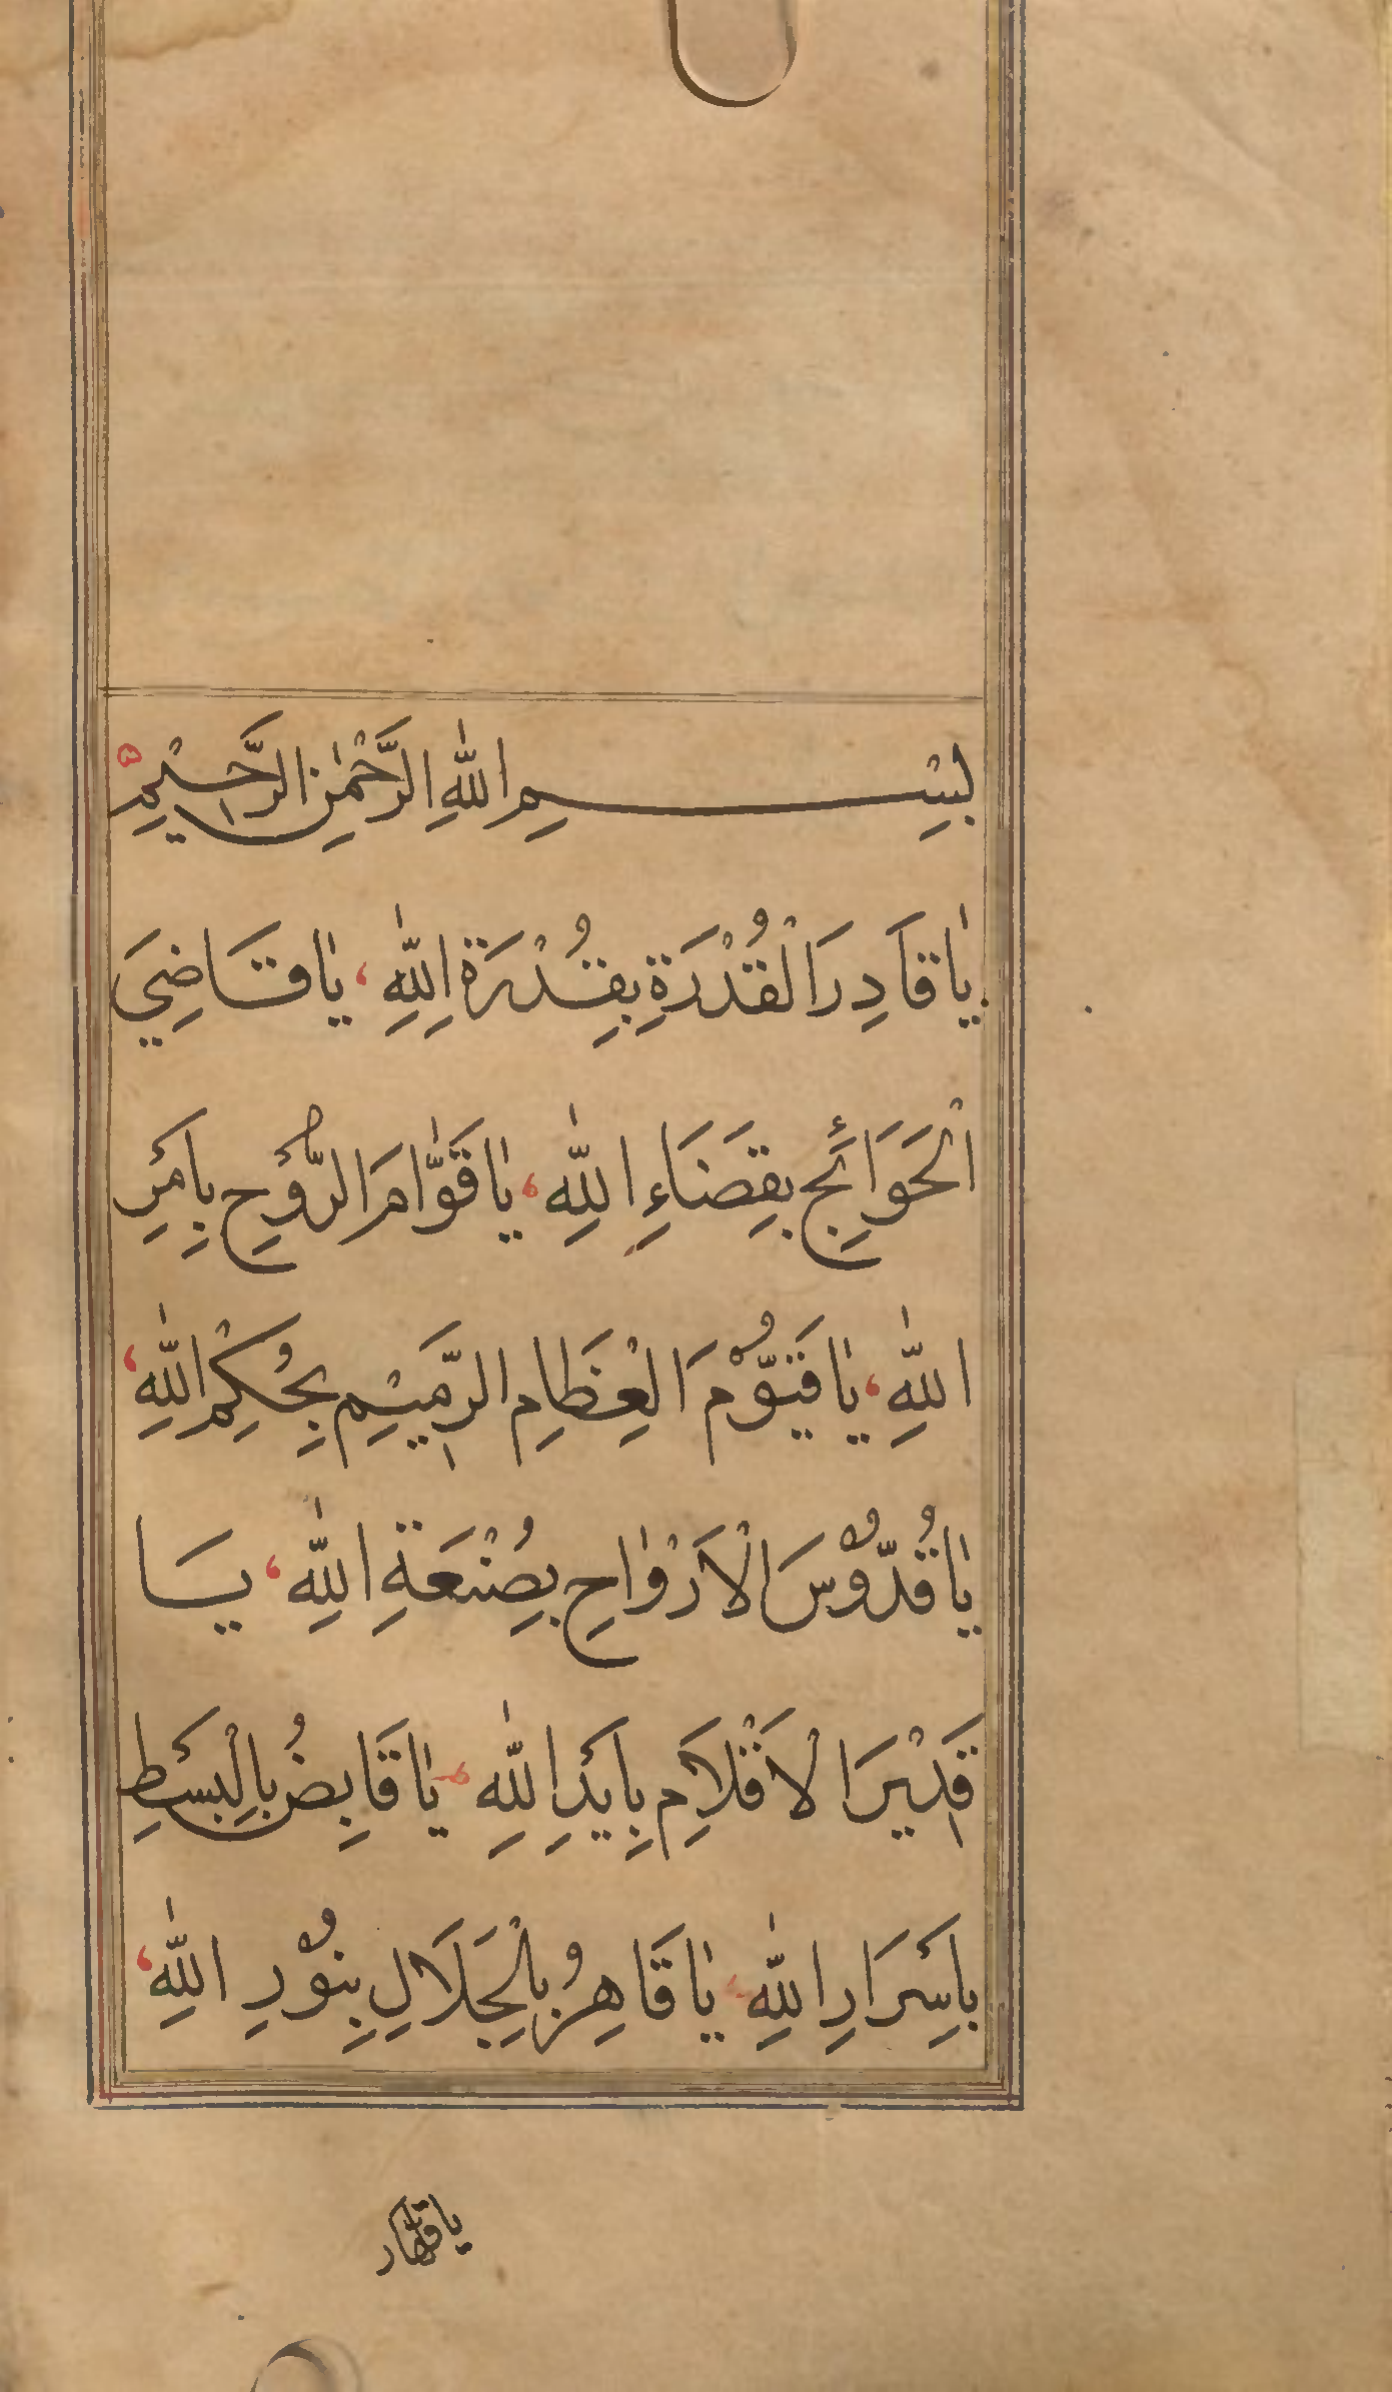 بِسْمِ اللّٰهِ الرَّحْمٰنِ الرَّحِيْمِ
يٰا قَادِرَ الْقُدْرَةِ بِقُدْرَةِ اللّٰهِ، يٰا قَاضِيَ
الْحَوَائِجِ بِقَضَاءِ اللّٰهِ، يٰا قَوّٰامَ الرُّوْحِ بِاَمْرِ
اللّٰهِ، يٰا قَيُّوْمَ الْعِظَامِ الرَّمِيْمِ بِحُكْمِ اللّٰهِ،
يٰا قُدُّوْسَ الْاَرْوٰاحِ بِصُنْعَةِ اللّٰهِ، يَا
قَدِيْرَ الْاَقْلَامِ بِاَيْدِ اللّٰهِ، يٰا قَابِضُ بِالْبَسْطِ
بِاَسْرَارِ اللّٰهِ، يٰا قَاهِرُ بِالْجَلَالِ بِنُوْرِ اللّٰهِ،
يا قهار